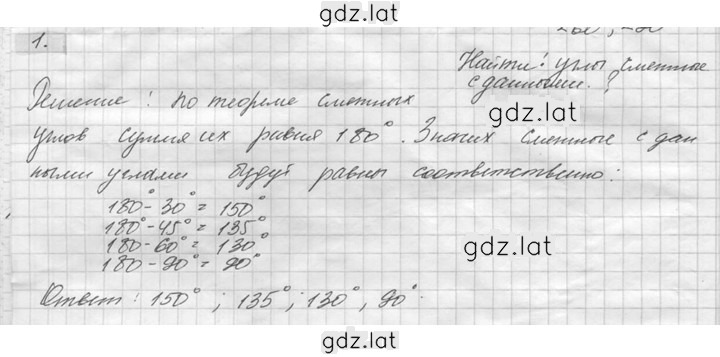 gdz.lat
1.
Найти: углы смежные
с данными.
gdz.lat
Решение: по теореме смежных
углов сумма их равна 180°. Значит смежные с дан
ными углами будут равны соответственно:
180-30°=150°
180°-45°=135°
180-60°=130°
180-90°=90°
gdz.lat
Ответ: 150°; 135°; 130°, 90°.
gdz.lat